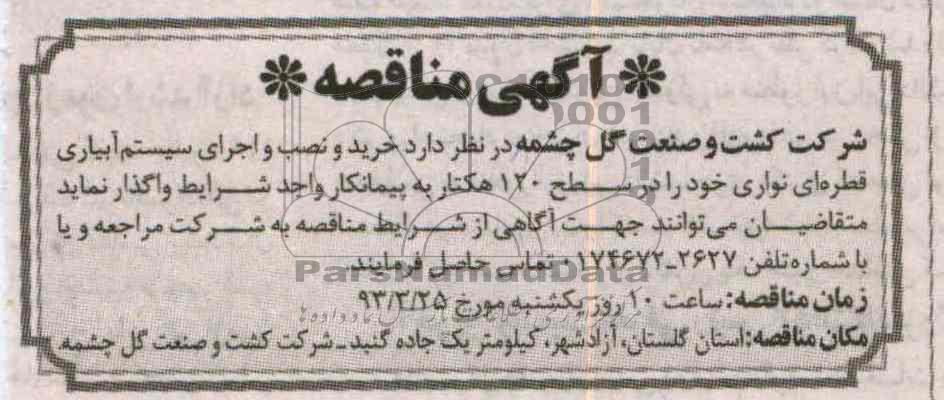 آگهی مناقصه
شرکت کشت و صنعت گل چشمه در نظر دارد خرید و نصب و اجرای سیستم آبیاری
قطره‌ای نواری خود را در سطح ۱۲۰ هکتار به پیمانکار واجد شرایط واگذار نماید
متقاضیان می‌توانند جهت آگاهی از شرایط مناقصه به شرکت مراجعه و یا
با شماره تلفن ۲۶۲۷-۰۱۷۴۶۷۲ تماس حاصل فرمایند.
زمان مناقصه: ساعت ۱۰ روز یکشنبه مورخ ۹۳/۳/۲۵
مکان مناقصه: استان گلستان، آزادشهر، کیلومتر یک جاده گنبد - شرکت کشت و صنعت گل چشمه
ParsNamadData